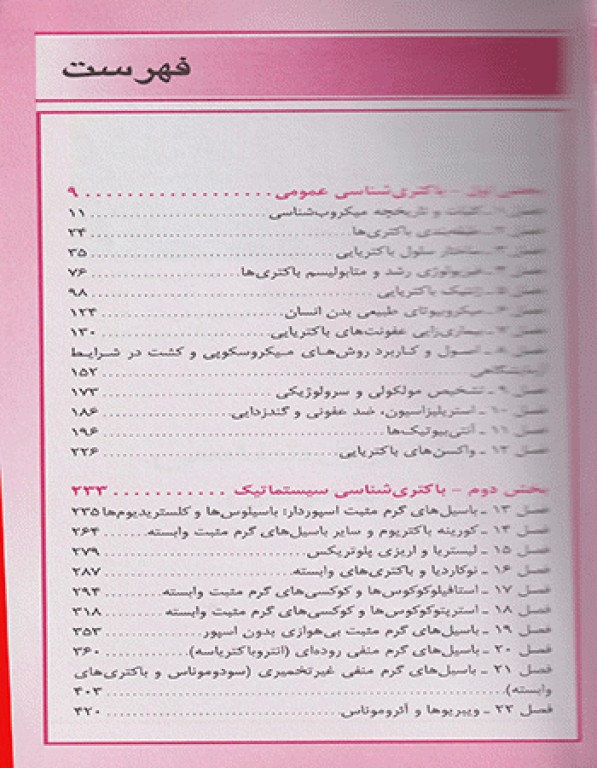 فهرست
بخش اول - باکتری‌شناسی عمومی ................... ۹
فصل ۱ ـ کلیات و تاریخچه میکروب‌شناسی ................... ۱۱
فصل ۲ ـ طبقه‌بندی باکتری‌ها ................... ۲۴
فصل ۳ ـ ساختار سلول باکتریایی ................... ۳۵
فصل ۴ ـ فیزیولوژی رشد و متابولیسم باکتری‌ها ................... ۷۶
فصل ۵ ـ ژنتیک باکتریایی ................... ۹۸
فصل ۶ ـ میکروبیوتای طبیعی بدن انسان ................... ۱۲۴
فصل ۷ ـ بیماری‌زایی عفونت‌های باکتریایی ................... ۱۳۰
فصل ۸ ـ اصول و کاربرد روش‌های میکروسکوپی و کشت در شرایط
آزمایشگاهی ................... ۱۵۲
فصل ۹ ـ تشخیص مولکولی و سرولوژیکی ................... ۱۷۳
فصل ۱۰ ـ استریلیزاسیون، ضد عفونی و گندزدایی ................... ۱۸۶
فصل ۱۱ ـ آنتی‌بیوتیک‌ها ................... ۱۹۶
فصل ۱۲ ـ واکسن‌های باکتریایی ................... ۲۲۶
بخش دوم - باکتری‌شناسی سیستماتیک ........... ۲۳۳
فصل ۱۳ ـ باسیل‌های گرم مثبت اسپوردار: باسیلوس‌ها و کلستریدیوم‌ها ۲۳۵
فصل ۱۴ ـ کورینه باکتریوم و سایر باسیل‌های گرم مثبت وابسته ........ ۲۶۴
فصل ۱۵ ـ لیستریا و اریزی پلوتریکس ................... ۲۷۹
فصل ۱۶ ـ نوکاردیا و باکتری‌های وابسته ................... ۲۸۷
فصل ۱۷ ـ استافیلوکوکوس‌ها و کوکسی‌های گرم مثبت وابسته ............ ۲۹۴
فصل ۱۸ ـ استرپتوکوکوس‌ها و کوکسی‌های گرم مثبت وابسته ............ ۳۱۸
فصل ۱۹ ـ باسیل‌های گرم مثبت بی‌هوازی بدون اسپور ................... ۳۵۳
فصل ۲۰ ـ باسیل‌های گرم منفی روده‌ای (انتروباکتریاسه) ................... ۳۶۰
فصل ۲۱ ـ باسیل‌های گرم منفی غیرتخمیری (سودوموناس و باکتری‌های
وابسته) ................... ۴۰۳
فصل ۲۲ ـ ویبریوها و آئروموناس ................... ۴۲۰